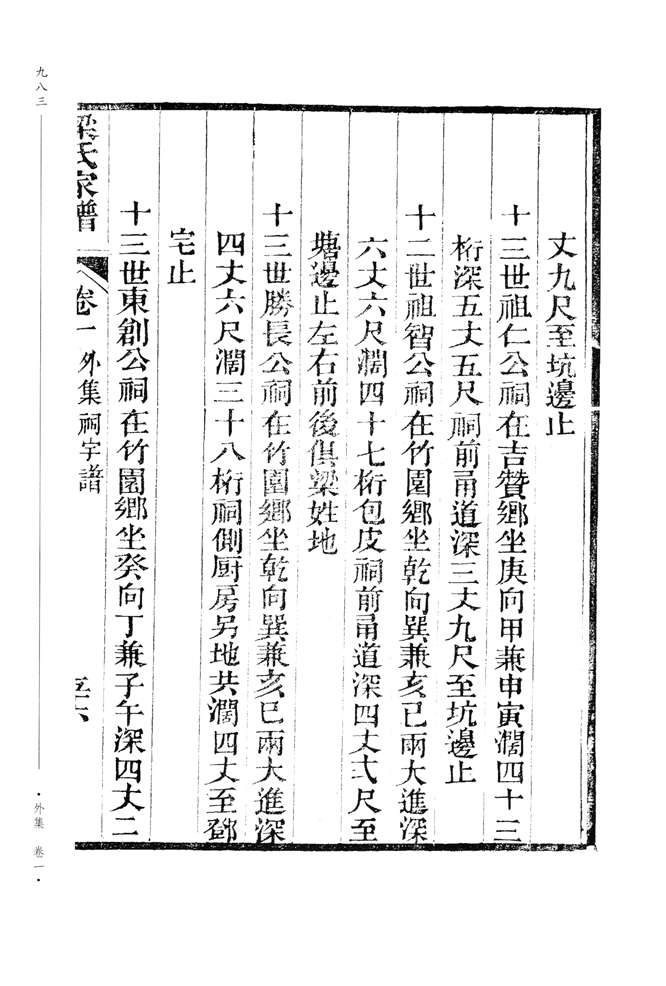 丈九尺至坑邊止
十三世祖仁公祠在吉贊鄉坐庚向甲兼申寅濶四十三
桁深五丈五尺祠前甬道深三丈九尺至坑邊止
十二世祖智公祠在竹園鄉坐乾向巽兼亥巳兩大進深
六丈六尺濶四十七桁包皮祠前甬道深四丈弍尺至
塘邊止左右前後俱梁姓地
十三世勝長公祠在竹園鄉坐乾向巽兼亥巳兩大進深
四丈六尺濶三十八桁祠側厨房另地共濶四丈至鄧
宅止
十三世東創公祠在竹園鄉坐癸向丁兼子午深四丈二
梁氏家譜 卷一 外集祠宇譜
九八三
·外集 卷一·